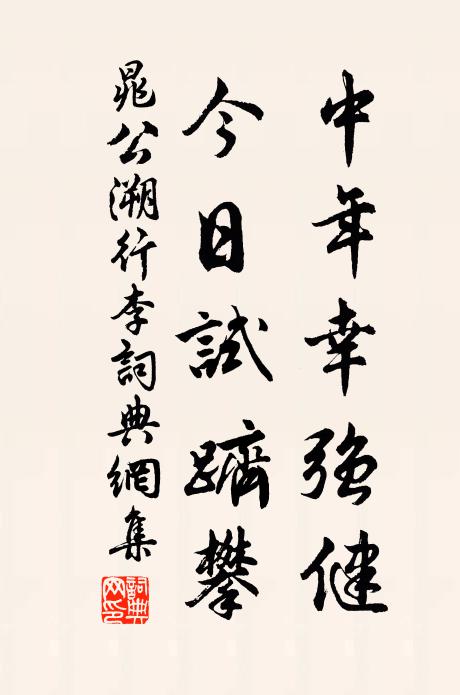 中年幸强健
今日試躋攀
晁公溯行李詞典網集
詞典網印